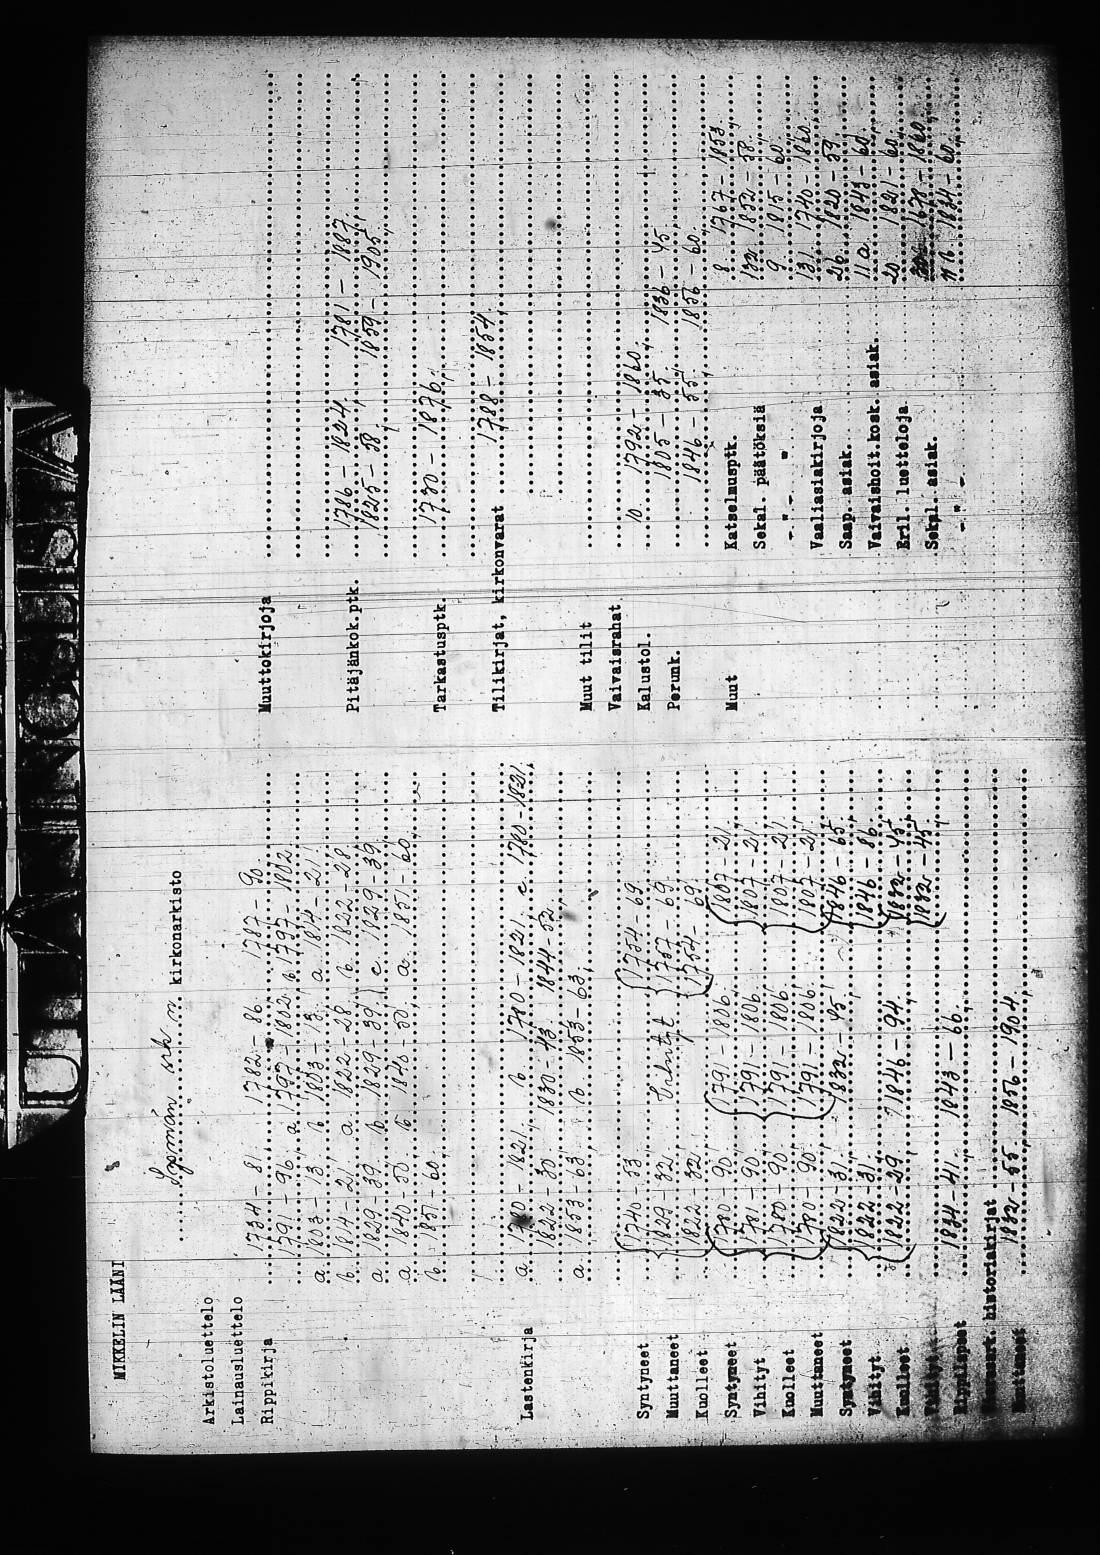 MIKKELIN LÄÄNI
Sysmän srk n kirkonarkisto
Arkistoluettelo
Lainausluettelo
Rippikirja 1734 - 81. 1782 - 86. 1787 - 90.
1791 - 96. a 1797 - 1802, b 1797 - 1802
a 1803 - 13 b 1803 - 13. a 1814 - 21.
b 1814 - 21, a 1822 - 28, b 1822 - 28
a 1829 - 39 b 1829 - 39, c 1829 - 39,
a 1840 - 50 b 1840 - 50, a 1851 - 60,
b 1851 - 60,
Lastenkirja a 1780 - 1821, b 1780 - 1821, c 1780 - 1821,
1822 - 30 1830 - 43 1844 - 52
a 1853 - 63, b 1853 - 63,
Syntyneet 1740 - 53 1754 - 69
Muuttaneet 1829 - 32, Vihityt 1757 - 69
Kuolleet 1822 - 32, 1754 - 69,
Syntyneet 1780 - 90, 1791 - 1806 1807 - 21,
Vihityt 1781 - 90, 1791 - 1806, 1807 - 21
Kuolleet 1780 - 90 1791 - 1806, 1807 - 21
Muuttaneet 1780 - 90, 1791 - 1806 1807 - 21,
Syntyneet 1822 - 31, 1832 - 45, 1846 - 65,
Vihityt 1822 - 31, 1846 - 86,
Kuolleet 1822 - 29, 1846 - 94, 1832 - 45,
Vihityt 1834 - 41. 1843 - 66, 1832 - 45,
Rippilapset
historiakirjat
Muuttaneet 1832 - 55 1856 - 1904,
Muuttokirjoja
Pitäjänkok.ptk. 1786 - 1824, 1781 - 1887.
1825 - 58, 1859 - 1905,
Tarkastusptk. 1730 - 1876,
Tilikirjat, kirkonvarat 1788 - 1854,
Muut tilit
Vaivaisrahat
Kalustol. 10 1792 - 1860,
Perunk. 1805 - 35, 1836 - 45
1846 - 55, 1856 - 60,
Muut Katselmusptk. 8 1767 - 1853,
Sekal. päätöksiä 132 1832 - 58,
- " - " 9 1815 - 60,
Vaaliasiakirjoja 131 1740 - 1860
Saap. asiak. 26 1820 - 59
Vaivaishoit.kosk. asiak. 11 a 1843 - 60,
Eril. luetteloja 20 1821 - 60,
Sekal. asiak 1678 - 1860,
- " - " - 11 b 1824 - 60,